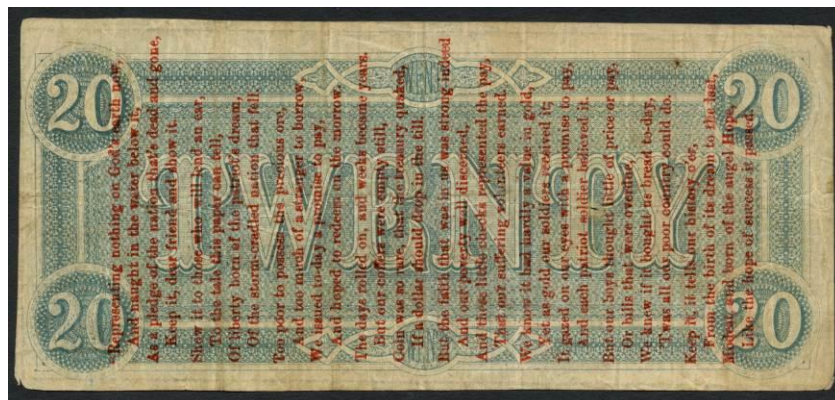 20
20
TWENTY
20
20
Representing nothing on God's earth now,
And naught in the water below it,
As a pledge of the nation that's dead and gone,
Keep it, dear friend and show it
Show it to those who will lend an ear,
To the tale this paper can tell,
Of liberty born of the patriot's dream,
Of the storm-cradled nation that fell.
Too poor to possess the precious ore,
And too much of a stranger to borrow,
We issued to-day a promise to pay,
And hoped to redeem on the morrow.
The days rolled on and weeks became years.
But our coffers were empty still,
Coin was so rare, that the treasury quaked,
If a dollar should drop in the till
But the faith that was in us was strong indeed
And our poverty well discerned,
And those little checks represented the pay,
That our suffering volunteers earned.
We knew it had hardly a value in gold,
Yet as gold our soldiers received it;
It gazed on our eyes with a promise to pay,
And each patriot soldier believed it.
But our boys thought little of price or pay,
Or bills that were overdue;
We knew if it bought us bread to-day,
'Twas all our poor country could do.
Keep it, it tells our history o'er,
From the birth of its dream to the last,
born of the angel
Like the hope of success it passed.